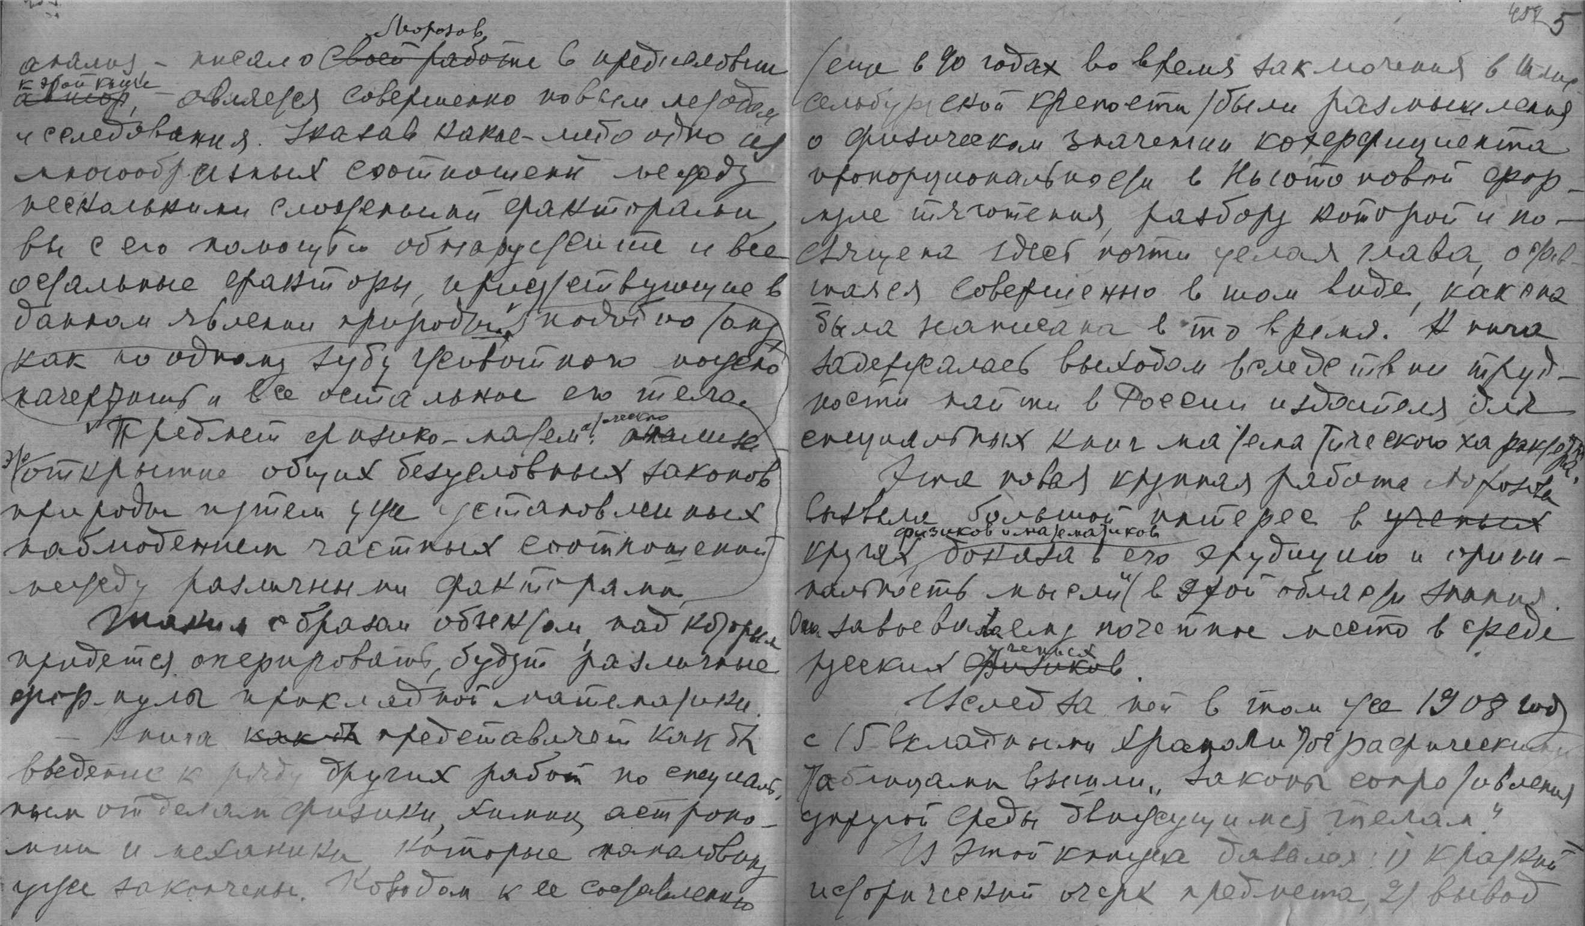 Морозов
анализ – писал о своей работе в предисловии
к этой книге
автор, является совершенно новым методом
исследования. Указав какое-либо одно из
многообразных соотношений между
несколькими сложенными факторами,
вы с его помощью обнаружите и все
остальные факторы, присутствующие в
данном явлении природы, подобно тому
как по одному зубу животного можно
начертить и все остальное его тело.
Предмет физико-математического анализа
это открытие общих безусловных законов
природы путем уже установленных
наблюдением частных соотношений
между различными факторами.
Таким образом объектом, над которым
придется оперировать, будут различные
формулы прикладной математики.
– Книга как бы представляет как бы
введение к ряду других работ по специаль-
ным отделам физики, химии, астроно-
мии и механики, которые наполовину
уже закончены. Поводом к ее составлению
5
(еще в 90 годах во время заключения в Шлис-
сельбургской крепости) были размышления
о физическом значении коэффициента
пропорциональности в Ньютоновой фор-
муле тяготения, разбору которой и по-
священа здесь почти целая глава, остав-
шаяся совершенно в том виде, как она
была написана в то время. Книга
задержалась выходом вследствии труд-
ности найти в России издателя для
специальных книг математического характера.
Эта новая крупная работа Морозова
вызвала большой интерес в ученых
физиков и математиков
кругах, доказав его эрудицию и ориги-
нальность мысли и в этой области знания.
Она завоевала ему почетное место в среде
ученых
русских физиков.
Вслед за ней в том же 1908 году
с 15 вкладными хромолитографическими
таблицами вышли „Законы сопротивления
упругой среды движущимся телам"
Из этой книжки давался: 1) краткий
исторический очерк предмета, 2) вывод